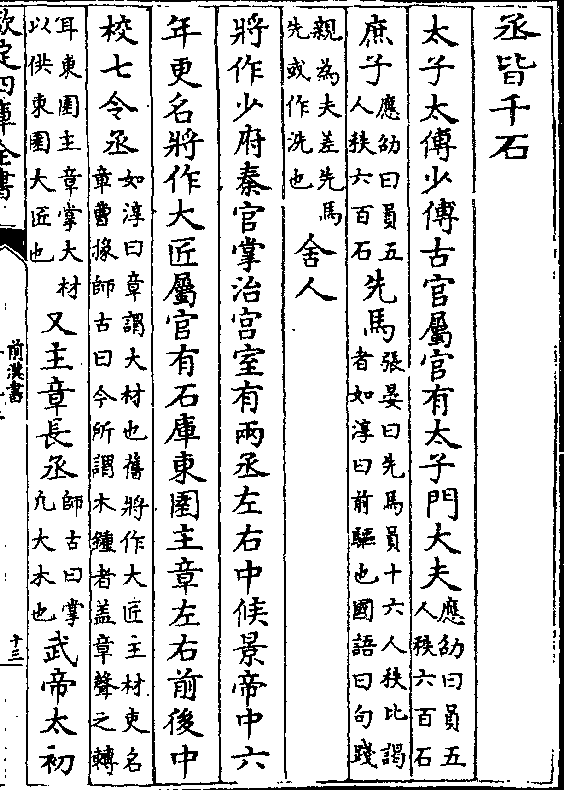 丞皆千石
太子太傅少傅古官屬官有太子門大夫應劭曰員五人秩六百石
庶子應劭曰員五人秩六百石先馬張晏曰先馬員十六人秩比謁者如淳曰前驅也國語曰句踐
親為夫差先馬先或作洗也舍人
將作少府秦官掌治宫室有兩丞左右中候景帝中六
年更名將作大匠屬官有石庫東園主章左右前後中
校七令丞如淳曰章謂大材也舊將作大匠主材吏名章曹掾師古曰今所謂木鍾者盖章聲之轉
耳東園主章掌大材以供東園大匠也又主章長丞師古曰掌凡大木也武帝太初
欽定四庫全書
前漢書
十三